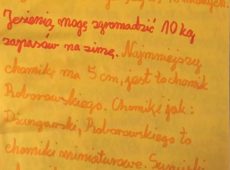 Jesienią, mogę zgromadzić 10 kg
zapasów na zimę. Najmniejszy
chomik ma 5 cm, jest to chomik
Roborowskiego. Chomiki jak:
Dżungarski, Roborowskiego to
chomiki miniaturowe.